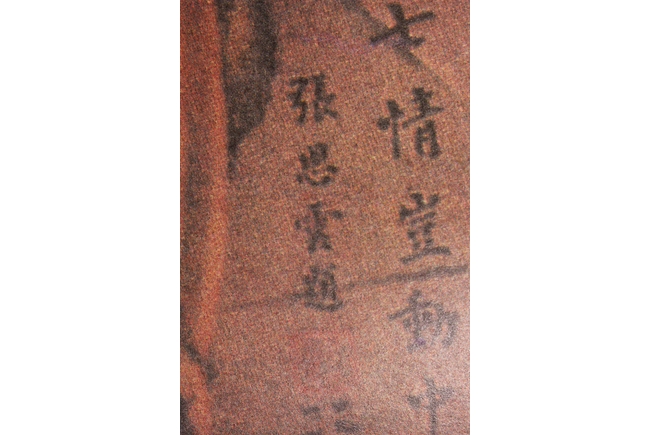 七情豈動中
張思雲題